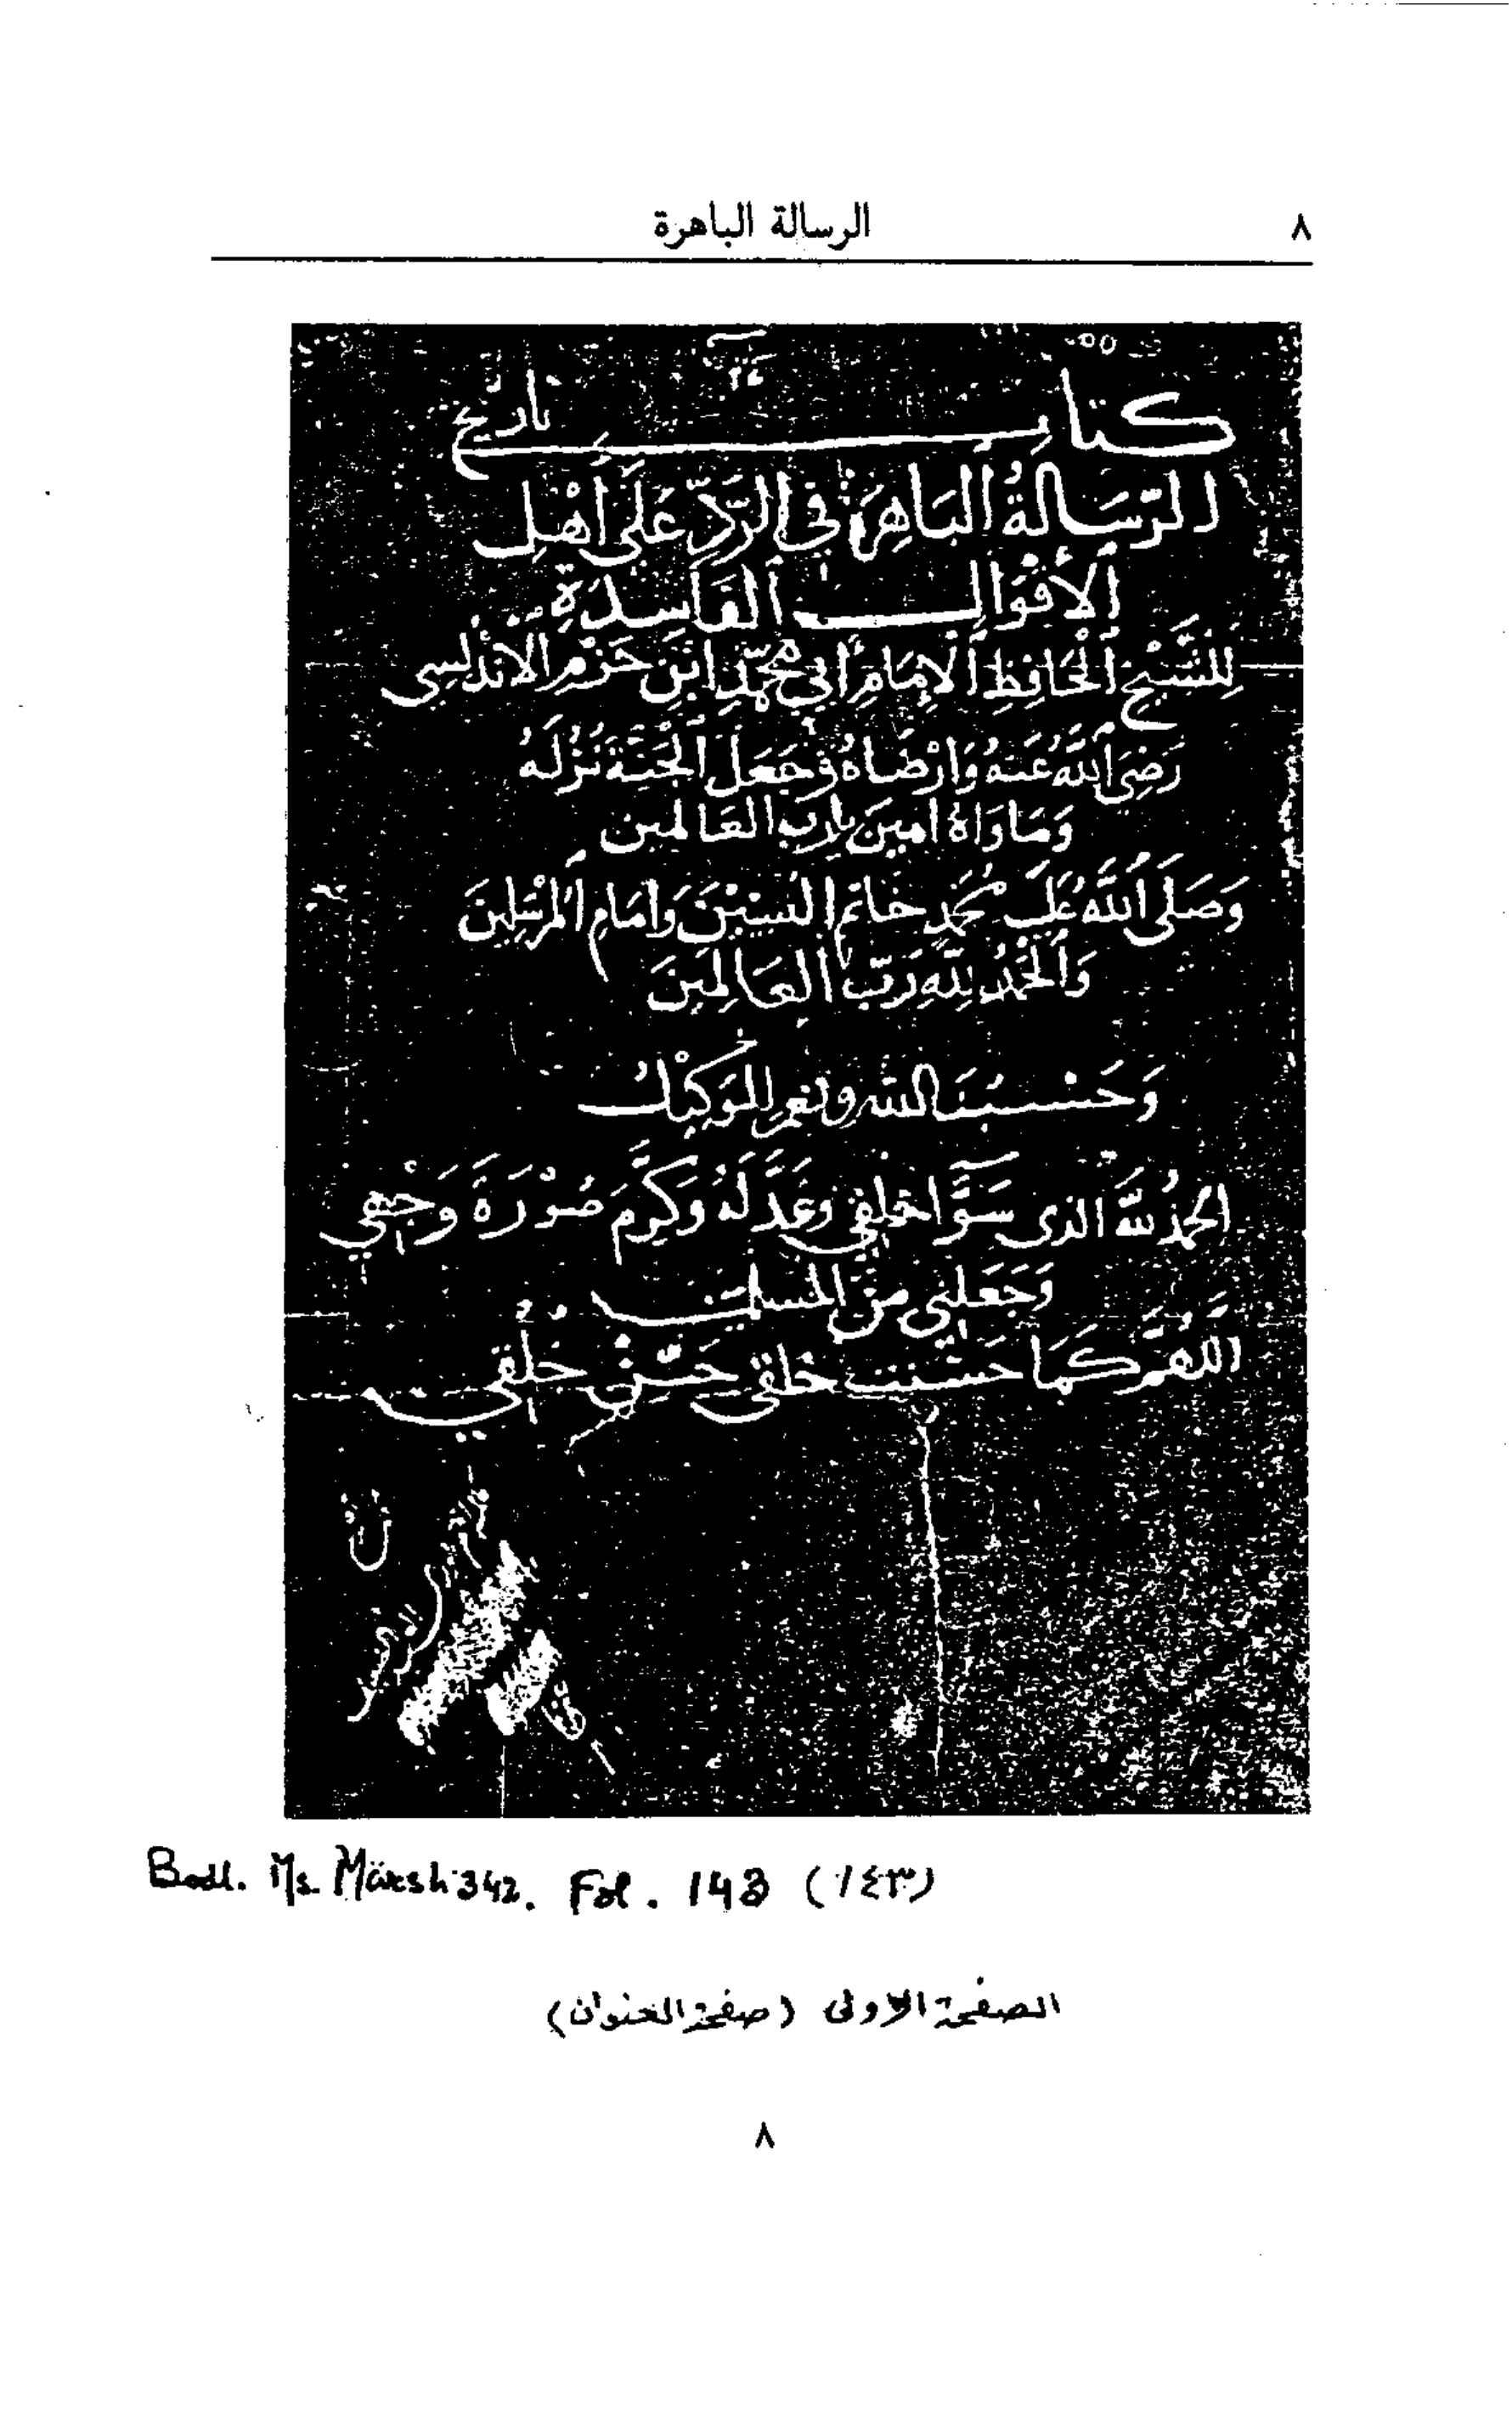 ٨
الرسالة الباهرة
كتاب
تاريخ
الرِّسَالَةُ البَاهِرَة في الرَّدِّ عَلَى أَهْلِ
الأَقْوَالِ الفَاسِدَةِ
لِلشَّيْخِ الْحَافِظِ الإِمَامِ أَبي مُحَمَّدِ ابْنِ حَزْمِ الأَنْدَلُسِي
رَضِيَ اللَّهُ عَنهُ وَارْضَاهُ وَجَعَلَ الْجَنَّةَ نُزُلَهُ
وَمَاوَاهُ امينَ يارَبَ العَالمين
وَصَلى اللَّهُ عَلَى مُحَمَّدٍ خاتم النَبِيِّيْنَ وَامَامِ المُرْسَلِينَ
وَالْحَمْدُ لِلَّهِ رَبِّ العَالَمِينَ
وَحَسْبُنَا الله ونعم الوَكيْلُ
الحمدُ للَّه الذى سَوَّا خلقي وعَدَّلَهُ وَكَرَّمَ صُوْرَةَ وَجْهي
وَجَعَلني من المسلمين
اللهم كمَا حَسَّنت خلقي حَسِّن خُلُقي
Bodl. Ms. Marsh 342. Fol. 143 (١٤٣)
الصفحة الاولى (صفحة العنوان)
٨